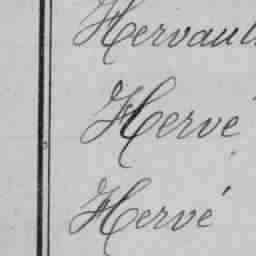 Hervault
Hervé
Hervé